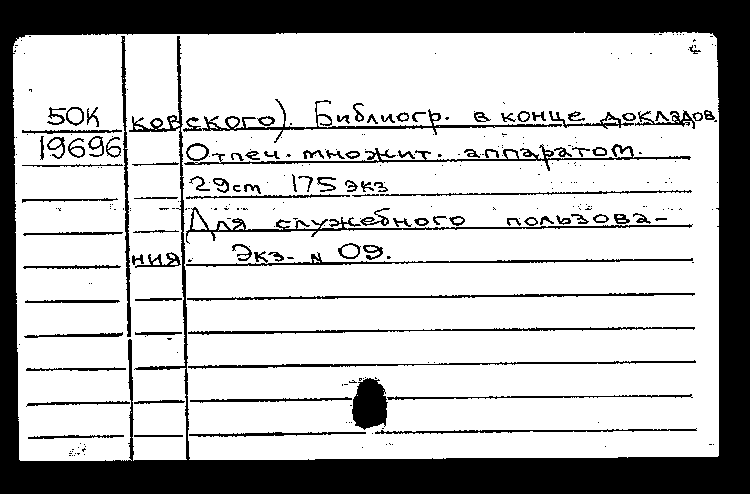 50К ковского). Библиогр. в конце докладов
19696 Отпеч. множит. аппаратом.
29см 175 экз
Для служебного пользова-
ния. Экз- N 09.